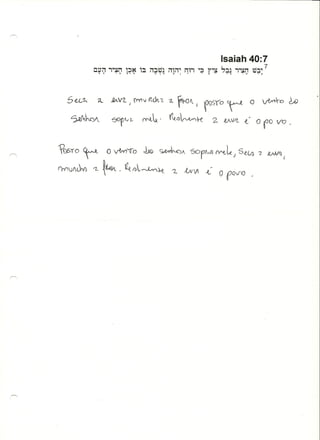 Isaiah 40:7
יָבֵשׁ חָצִיר נָבֵל צִיץ כִּי רוּחַ יְהוָה נָשְׁבָה בּוֹ אָכֵן חָצִיר הָעָם 7
Seca a erva, murcha a flor, posto que o vento do
Senhor sopra nela. Realmente a erva é o povo.
Posto que o vento do senhor sopra nela, Seca a erva,
murcha a flor. Realmente a erva é o povo.